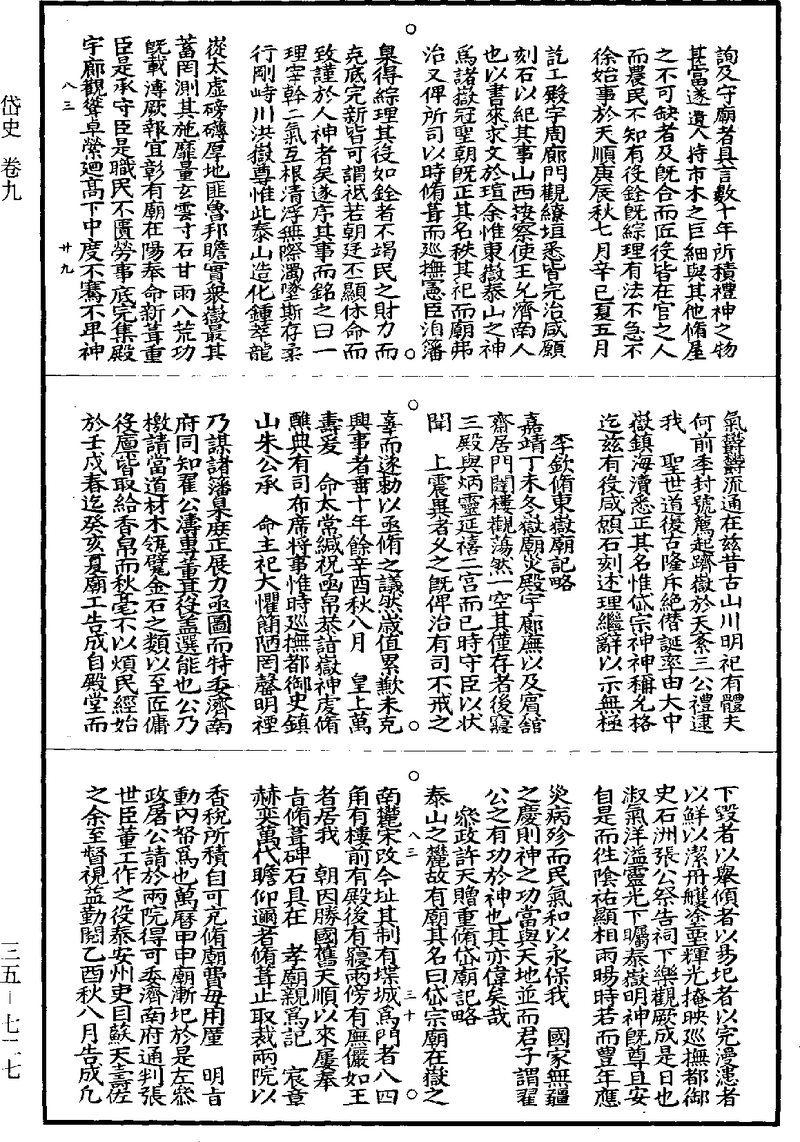 岱史 卷九
詢及守廟者具言數十年所積禮神之物
甚富遂遣人持市木之巨細與其他脩屋
之不可缺者及旣合而匠役皆在官之人
而農民不知有役銓旣綜理有法不急不
徐始事於天順庚辰秋七月辛巳夏五月
訖工殿宇周廊門觀繚垣悉皆完治咸願
刻石以紀其事山西按察使王允濟南人
也以書來求文於瑄余惟東嶽泰山之神
爲諸嶽冠聖朝旣正其名秩其祀而廟弗
治又俾所司以時脩葺而巡撫憲臣洎籓
臬得綜理其役如銓者不竭民之財力而
克底完新皆可謂祗若朝廷丕顯休命而
致謹於人神者矣遂序其事而銘之曰一
理宰幹二氣互根清浮無際濁墜斯存柔
行剛峙川洪嶽尊惟此泰山造化鍾萃巃
嵸太虛磅礴厚地匪魯邦瞻實衆嶽最其
蓄罔測其施靡量玄雲寸石甘雨八荒功
旣載溥厥報宜彰有廟在陽奉命新葺重
臣是承守臣是職民不匱勞事底完集殿
宇廊觀聳卓縈廻髙下中度不騫不卑神
八三
廿九
氣欝欝流通在兹昔古山川明祀有體夫
何前季封號薦起躋嶽於天紊三公禮逮
我 聖世道復古隆斥絶僣誕率由大中
嶽鎮海瀆悉正其名惟岱宗神神稱允格
迄兹有役咸願石刻述理繼辭以示無極
李欽脩東嶽廟記略
嘉靖丁未冬嶽廟災殿宇廊廡以及賓舘
齋居門闥樓觀蕩然一空其僅存者後寢
三殿與炳靈延禧二宫而已時守臣以狀
聞 上震異者乆之旣俾治有司不戒之
辜而遂勅以亟脩之議然歲値累歉未克
興事者垂十年餘辛酉秋八月 皇上萬
壽爰 命太常緘祝函帛恭詣嶽神虔脩
醮典有司布席將事惟時巡撫都御史鎮
山朱公承 命主祀大懼簡陋罔馨明禋
乃謀諸籓臬庶正展力亟圖而特委濟南
府同知翟公濤專董其役盖選能也公乃
檄請當道材木瓴甓金石之類以至匠傭
役廪皆取給香帛而秋毫不以煩民經始
於壬戍春迄癸亥夏廟工告成自殿堂而
下毀者以舉傾者以昜圮者以完漫漶者
以鮮以潔丹艧塗塈輝光掩映巡撫都御
史石洲張公祭告祠下樂觀厥成是日也
淑氣洋溢靈光下矚泰嶽明神旣尊且安
自是而徃陰祐顯相雨暘時若而豐年應
災病殄而民氣和以永保我 國家無疆
之慶則神之功當與天地並而君子謂翟
公之有功於神也其亦偉矣哉
叅政許天贈重脩岱廟記略
泰山之麓故有廟其名曰岱宗廟在嶽之
八三
三十
南麓宋改今址其制有堞城爲門者八四
角有樓前有殿後有寢兩傍有廡儼如王
者居我 朝因勝國舊天順以來屢奉
旨脩葺碑石具在 孝廟親爲記 宸章
赫奕萬代瞻仰邇者脩葺止取裁兩院以
香稅所積自可充脩廟費毋用厪 明旨
動內帑爲也萬曆甲申廟漸圮於是左叅
政屠公請於兩院得可委濟南府通判張
世臣董工作之役泰安州吏目蘇天壽佐
之余至督視益勤閱乙酉秋八月告成凢
三五－七二七